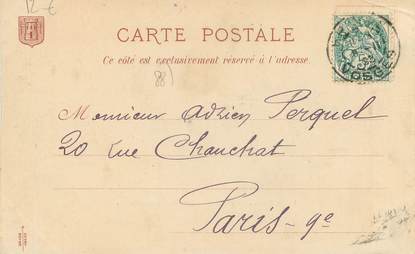 12-€
CARTE POSTALE
Ce côté est exclusivement réservé à l'adresse.
88)
VOSGES
Monsieur Adrien Perquel
20 Rue Chauchat
Paris-9e